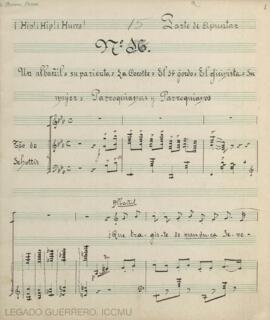 ¡Hip! ¡Hip! ¡Hurra! 15 Parte de Apuntar
Un albañil = su parienta = La Cocotte = El Sr gordo = El oficinista = Su
mujer = Parroquianas y Parroquianos
Tpo. de
Schottis
Albañil
¡Que tra-gis-te
LEGADO GUERRERO. ICCMU